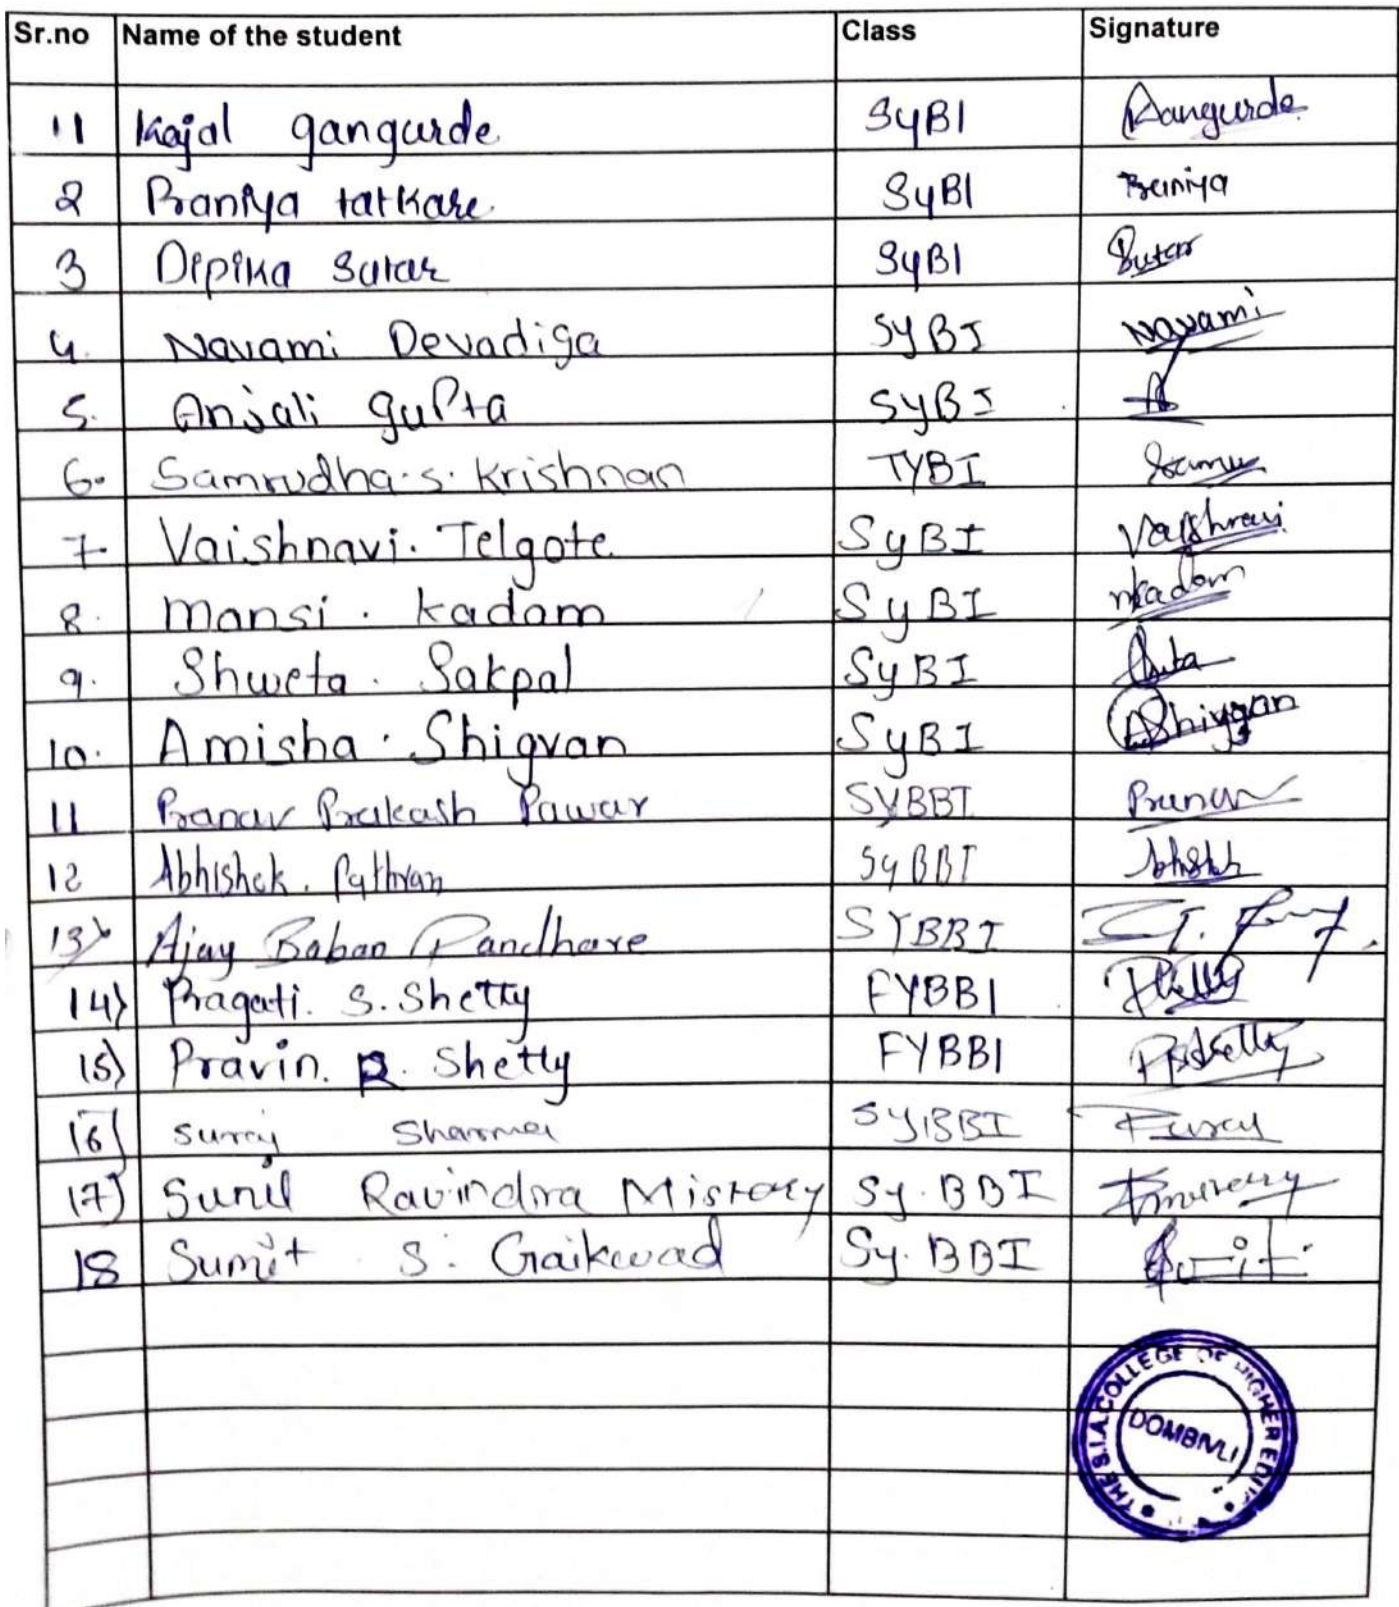 Sr.no Name of the student Class Signature
11 Kajal gangurde SyBI Gangurde
2 Praniya tatkare SyBI Praniya
3 Dipika Sutar SyBI Sutar
4. Navami Devadiga SyBI Navami
5. Anjali gupta SyBI
6. Samrudha.s. Krishnan TYBI
7. Vaishnavi. Telgote SyBI Vaishnavi
8. Mansi. Kadam SyBI mkadam
9. Shweta. Sakpal SyBI
10. Amisha. Shigvan SyBI AShigvan
11 Pranav Prakash Pawar SYBBI Pranav
12 Abhishek. SyBBI
13) Ajay Baban Pandhare SYBBI
14) Pragati. S. Shetty FYBBI
15) Pravin. R. Shetty FYBBI
16) Suraj Sharma SYBBI Suraj
17) Sunil Ravindra Mistary Sy.BBI
18 Sumit S. Gaikwad Sy.BBI Sumit
THE S.I.A. COLLEGE OF HIGHER
DOMBIVLI